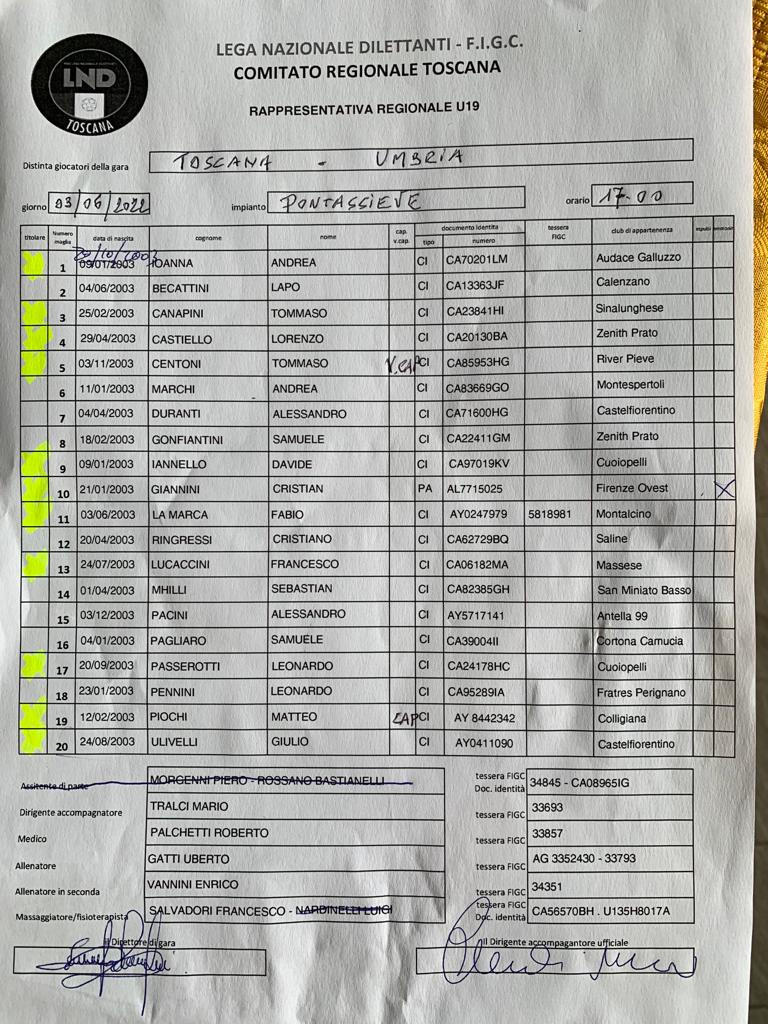 LND
TOSCANA
LEGA NAZIONALE DILETTANTI - F.I.G.C.
COMITATO REGIONALE TOSCANA
RAPPRESENTATIVA REGIONALE U19
Distinta giocatori della gara TOSCANA - UMBRIA
giorno 03/06/2022 impianto PONTASSIEVE orario 17-00
titolare Numero maglia data di nascita cognome nome cap. v.cap. documento identita tipo numero tessera FIGC club di appartenenza
1 09/01/2003 IOANNA ANDREA CI CA70201LM Audace Galluzzo
2 04/06/2003 BECATTINI LAPO CI CA13363JF Calenzano
3 25/02/2003 CANAPINI TOMMASO CI CA23841HI Sinalunghese
4 29/04/2003 CASTIELLO LORENZO CI CA20130BA Zenith Prato
5 03/11/2003 CENTONI TOMMASO V.CAP CI CA85953HG River Pieve
6 11/01/2003 MARCHI ANDREA CI CA83669GO Montespertoli
7 04/04/2003 DURANTI ALESSANDRO CI CA71600HG Castelfiorentino
8 18/02/2003 GONFIANTINI SAMUELE CI CA22411GM Zenith Prato
9 09/01/2003 IANNELLO DAVIDE CI CA97019KV Cuoiopelli
10 21/01/2003 GIANNINI CRISTIAN PA AL7715025 Firenze Ovest X
11 03/06/2003 LA MARCA FABIO CI AY0247979 5818981 Montalcino
12 20/04/2003 RINGRESSI CRISTIANO CI CA62729BQ Saline
13 24/07/2003 LUCACCINI FRANCESCO CI CA06182MA Massese
14 01/04/2003 MHILLI SEBASTIAN CI CA82385GH San Miniato Basso
15 03/12/2003 PACINI ALESSANDRO CI AY5717141 Antella 99
16 04/01/2003 PAGLIARO SAMUELE CI CA39004II Cortona Camucia
17 20/09/2003 PASSEROTTI LEONARDO CI CA24178HC Cuoiopelli
18 23/01/2003 PENNINI LEONARDO CI CA95289IA Fratres Perignano
19 12/02/2003 PIOCHI MATTEO CAP CI AY 8442342 Colligiana
20 24/08/2003 ULIVELLI GIULIO CI AY0411090 Castelfiorentino
Assitente di parte MORGENNI PIERO - ROSSANO BASTIANELLI tessera FIGC Doc. identità 34845 - CA08965IG
Dirigente accompagnatore TRALCI MARIO tessera FIGC 33693
Medico PALCHETTI ROBERTO tessera FIGC 33857
Allenatore GATTI UBERTO tessera FIGC AG 3352430 - 33793
Allenatore in seconda VANNINI ENRICO tessera FIGC 34351
Massaggiatore/fisioterapista SALVADORI FRANCESCO - NARDINELLI LUIGI tessera FIGC Doc. identità CA56570BH . U135H8017A
Il Direttore di gara Il Dirigente accompagantore ufficiale